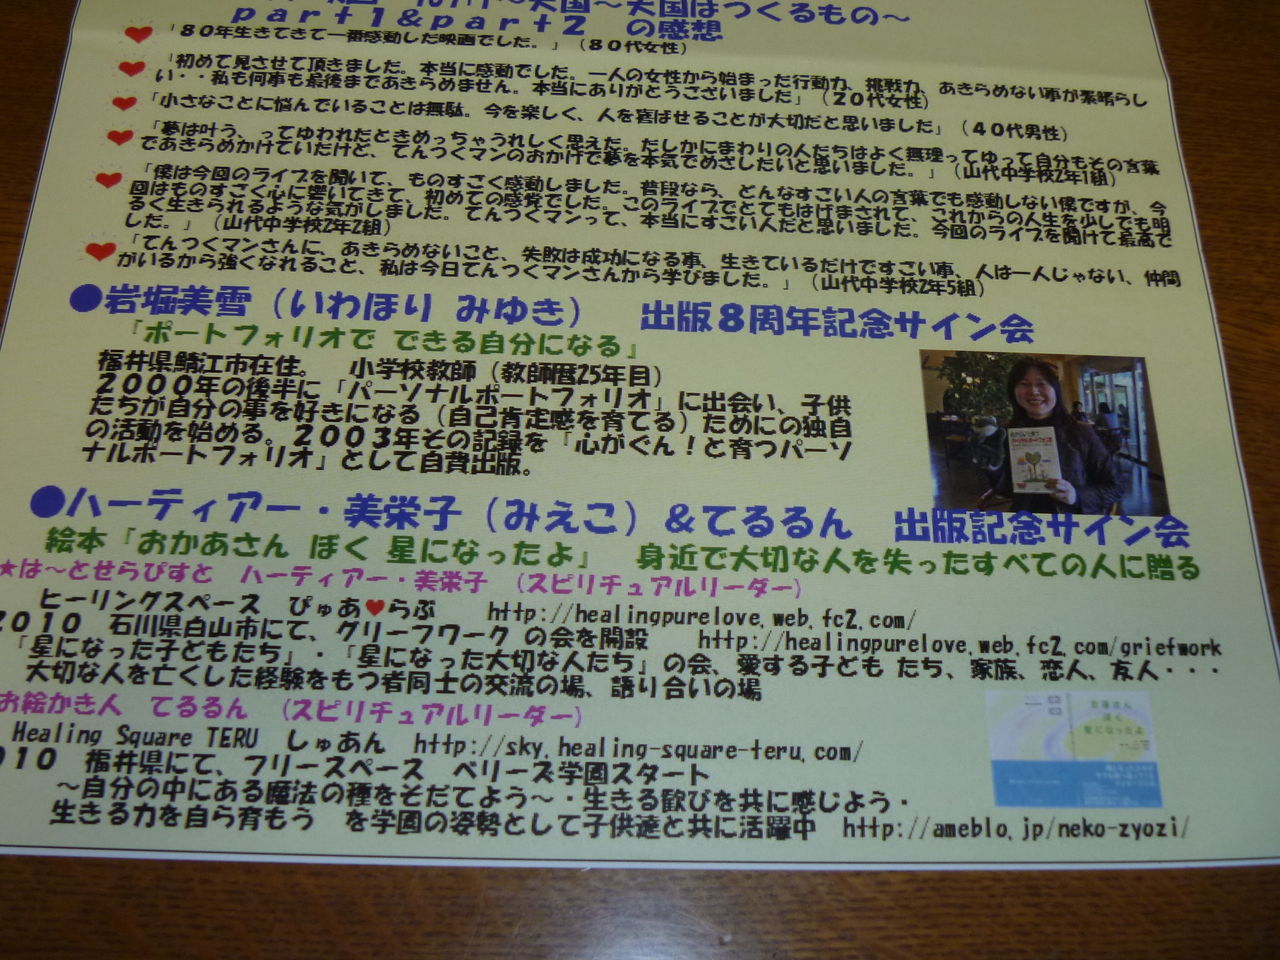 ～天国はつくるもの～
part1＆part2　の感想
「80年生きてきて一番感動した映画でした。」（80代女性）
「初めて見させて頂きました。本当に感動でした。一人の女性から始まった行動力、挑戦力、あきらめない事が素晴らし
い・・私も何事も最後まであきらめません。本当にありがとうございました」（20代女性）
「小さなことに悩んでいることは無駄。今を楽しく、人を喜ばせることが大切だと思いました」（40代男性）
「夢は叶う、ってゆわれたときめっちゃうれしく思えた。だしかにまわりの人だちはよく無理ってゆって自分もその言葉
であきらめかけていだけど、てんつくマンのおかげで夢を本気でめざしたいと思いました。」（山代中学校2年1組）
「僕は今回のライブを聞いて、ものすごく感動しました。普段なら、どんなすごい人の言葉でも感動しない僕ですが、今
回はものすごく心に響いてきて、初めての感覚でした。このライブでとてもはげまされて、これからの人生を少しでも明
るく生きられるような気がしました。てんつくマンって、本当にすごい人だと思いました。今回のライブを聞けて最高で
した。」（山代中学校2年2組）
「てんつくマンさんに、あきらめないこと、失敗は成功になる事、生きているだけですごい事、人は一人じゃない、仲間
がいるから強くなれること、私は今日てんつくマンさんから学びました。」（山代中学校2年5組）
●岩堀美雪（いわほり みゆき）　出版8周年記念サイン会
「ポートフォリオで できる自分になる」
福井県鯖江市在住。　小学校教師（教師暦25年目）
2000年の後半に「パーソナルポートフォリオ」に出会い、子供
たちが自分の事を好きになる（自己肯定感を育てる）ためにの独自
の活動を始める。2003年その記録を「心がぐん！と育つパーソ
ナルポートフォリオ」として自費出版。
●ハーティアー・美栄子（みえこ）＆てるるん　出版記念サイン会
絵本『おかあさん ぼく 星になったよ』　身近で大切な人を失ったすべての人に贈る
★は～とせらぴすと　ハーティアー・美栄子　（スピリチュアルリーダー）
ヒーリングスペース　ぴゅあ♥らぶ　http://healingpurelove.web.fc2.com/
2010　石川県白山市にて、グリーフワーク の会を開設　http://healingpurelove.web.fc2.com/griefwork
「星になった子どもたち」・「星になった大切な人たち」の会、愛する子ども たち、家族、恋人、友人・・・
大切な人を亡くした経験をもつ者同士の交流の場、語り合いの場
お絵かき人　てるるん　（スピリチュアルリーダー）
Healing Square TERU　しゅあん　http://sky.healing-square-teru.com/
010　福井県にて、フリースペース　ベリーズ学園スタート
～自分の中にある魔法の種をそだてよう～・生きる歓びを共に感じよう・
生きる力を自ら育もう　を学園の姿勢として子供達と共に活躍中　http://ameblo.jp/neko-zyozi/